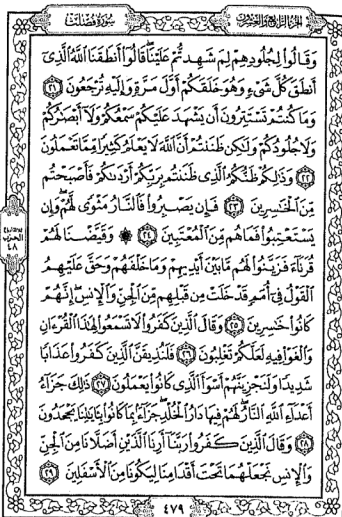 الجزء الرابع والعشرون سورة فصلت
وَقَالُوا۟ لِجُلُودِهِمْ لِمَ شَهِدتُّمْ عَلَيْنَا ۖ قَالُوٓا۟ أَنطَقَنَا ٱللَّهُ ٱلَّذِىٓ
أَنطَقَ كُلَّ شَىْءٍ وَهُوَ خَلَقَكُمْ أَوَّلَ مَرَّةٍ وَإِلَيْهِ تُرْجَعُونَ ٢١
وَمَا كُنتُمْ تَسْتَتِرُونَ أَن يَشْهَدَ عَلَيْكُمْ سَمْعُكُمْ وَلَآ أَبْصَٰرُكُمْ
وَلَا جُلُودُكُمْ وَلَٰكِن ظَنَنتُمْ أَنَّ ٱللَّهَ لَا يَعْلَمُ كَثِيرًا مِّمَّا تَعْمَلُونَ
٢٢ وَذَٰلِكُمْ ظَنُّكُمُ ٱلَّذِى ظَنَنتُم بِرَبِّكُمْ أَرْدَىٰكُمْ فَأَصْبَحْتُم
مِّنَ ٱلْخَٰسِرِينَ ٢٣ فَإِن يَصْبِرُوا۟ فَٱلنَّارُ مَثْوًى لَّهُمْ ۖ وَإِن
يَسْتَعْتِبُوا۟ فَمَا هُم مِّنَ ٱلْمُعْتَبِينَ ٢٤ ۞ وَقَيَّضْنَا لَهُمْ
قُرَنَآءَ فَزَيَّنُوا۟ لَهُم مَّا بَيْنَ أَيْدِيهِمْ وَمَا خَلْفَهُمْ وَحَقَّ عَلَيْهِمُ
ٱلْقَوْلُ فِىٓ أُمَمٍ قَدْ خَلَتْ مِن قَبْلِهِم مِّنَ ٱلْجِنِّ وَٱلْإِنسِ ۖ إِنَّهُمْ
كَانُوا۟ خَٰسِرِينَ ٢٥ وَقَالَ ٱلَّذِينَ كَفَرُوا۟ لَا تَسْمَعُوا۟ لِهَٰذَا ٱلْقُرْءَانِ
وَٱلْغَوْا۟ فِيهِ لَعَلَّكُمْ تَغْلِبُونَ ٢٦ فَلَنُذِيقَنَّ ٱلَّذِينَ كَفَرُوا۟ عَذَابًا
شَدِيدًا وَلَنَجْزِيَنَّهُمْ أَسْوَأَ ٱلَّذِى كَانُوا۟ يَعْمَلُونَ ٢٧ ذَٰلِكَ جَزَآءُ
أَعْدَآءِ ٱللَّهِ ٱلنَّارُ ۖ لَهُمْ فِيهَا دَارُ ٱلْخُلْدِ ۖ جَزَآءًۢ بِمَا كَانُوا۟ بِـَٔايَٰتِنَا يَجْحَدُونَ
٢٨ وَقَالَ ٱلَّذِينَ كَفَرُوا۟ رَبَّنَآ أَرِنَا ٱلَّذَيْنِ أَضَلَّانَا مِنَ ٱلْجِنِّ
وَٱلْإِنسِ نَجْعَلْهُمَا تَحْتَ أَقْدَامِنَا لِيَكُونَا مِنَ ٱلْأَسْفَلِينَ ٢٩
الحزب
٤٨
٤٧٩